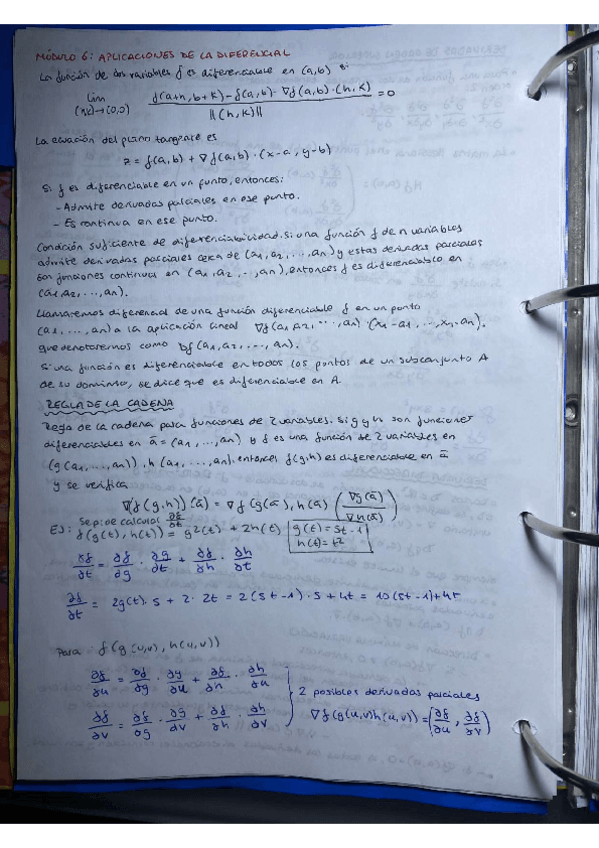 MÓDULO 6: APLICACIONES DE LA DIFERENCIAL
La función de dos variables f es diferenciable en (a,b) si
lim (h,k)→(0,0) f(a+h, b+k) - f(a,b) - ∇f(a,b)·(h,k) / ||(h,k)|| = 0
La ecuación del plano tangente es
z = f(a,b) + ∇f(a,b)·(x-a, y-b)
Si f es diferenciable en un punto, entonces:
- Admite derivadas parciales en ese punto.
- Es continua en ese punto.
Condición suficiente de diferenciabilidad. Si una función f de n variables
admite derivadas parciales cerca de (a1, a2, ..., an) y estas derivadas parciales
son funciones continuas en (a1, a2, ..., an), entonces f es diferenciable en
(a1, a2, ..., an).
Llamaremos diferencial de una función diferenciable f en un punto
(a1, ..., an) a la aplicación lineal ∇f(a1, a2, ..., an)·(x1-a1, ..., xn-an),
que denotaremos como Df(a1, a2, ..., an).
Si una función es diferenciable en todos los puntos de un subconjunto A
de su dominio, se dice que es diferenciable en A.
REGLA DE LA CADENA
Regla de la cadena para funciones de 2 variables. Si g y h son funciones
diferenciables en ā = (a1, ..., an) y f es una función de 2 variables en
(g(a1, ..., an)), h(a1, ..., an), entonces f(g,h) es diferenciable en ā
y se verifica
∇(f(g,h))(ā) = ∇f(g(ā), h(ā)) (∇g(ā) / ∇h(ā))
Se pide calcular ∂f/∂t
EJ: f(g(t), h(t)) = g2(t) + 2h(t) g(t) = 5t-1
h(t) = t2
∂f/∂t = ∂f/∂g · ∂g/∂t + ∂f/∂h · ∂h/∂t
∂f/∂t = 2g(t)·5 + 2·2t = 2(5t-1)·5 + 4t = 10(5t-1)+4t
Para: f(g(u,v), h(u,v))
∂f/∂u = ∂f/∂g · ∂g/∂u + ∂f/∂h · ∂h/∂u
2 posibles derivadas parciales
∂f/∂v = ∂f/∂g · ∂g/∂v + ∂f/∂h · ∂h/∂v
∇f(g(u,v)h(u,v)) = (∂f/∂u, ∂f/∂v)